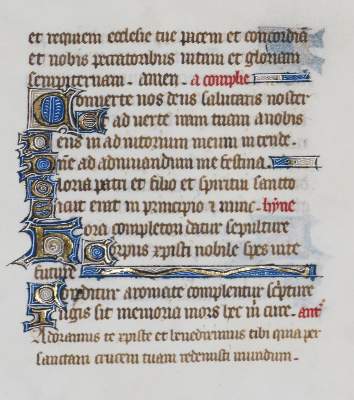 et requiem ecclesie tue pacem et concordiam
et nobis peccatoribus uitam et gloriam
sempiternam. amen. a complie
Conuerte nos deus salutaris noster
Et auerte iram tuam a nobis
Deus in adiutorium meum intende.
Domine ad adiuuandum me festina.
Gloria patri et filio et spiritui sancto
Sicut erat in principio et nunc. hyne
Hora completorii datur sepulture
Corpus xpisti nobile spes uite
future
Conditur aromate complentur scripture
Iugis sit memoria mors hec in cure. ant
Adoramus te xpiste et benedicimus tibi quia per
sanctam crucem tuam redemisti mundum.